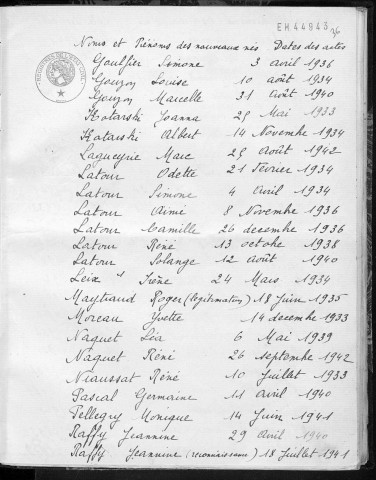 EM44948
36
Noms et Prénoms des nouveaux nés Dates des actes
Goulfier Simone 3 avril 1936
Gouzon Louise 10 août 1934
Gouzon Marcelle 31 Août 1940
Kotarski Joanna 25 Mai 1933
Kotarski Albert 14 Novembre 1934
Lagueyrie Marc 25 Août 1942
Latour Odette 21 février 1934
Latour Simone 4 avril 1934
Latour Aimé 8 Novembre 1936
Latour Camille 26 decembre 1936
Latour Réné 13 octobre 1938
Latour Solange 12 août 1940
Leix Irène 24 Mars 1934
Maytraud Roger (legitimation) 18 Juin 1935
Moreau Yvette 14 decembre 1933
Naquet Léa 6 Mai 1939
Naquet Réné 26 Septembre 1942
Niaussat Réné 10 Juillet 1933
Pascal Germaine 11 avril 1940
Pellegry Monique 14 Juin 1941
Raffy Jeannine 29 Avril 1940
Raffy Jeannine (reconnaissance) 18 Juillet 1941